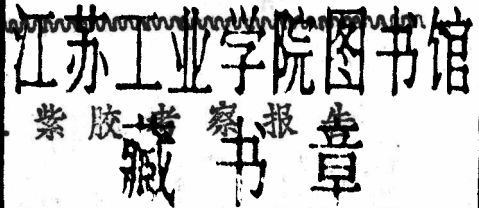 江苏工业学院图书馆
紫胶考察报告
藏书章